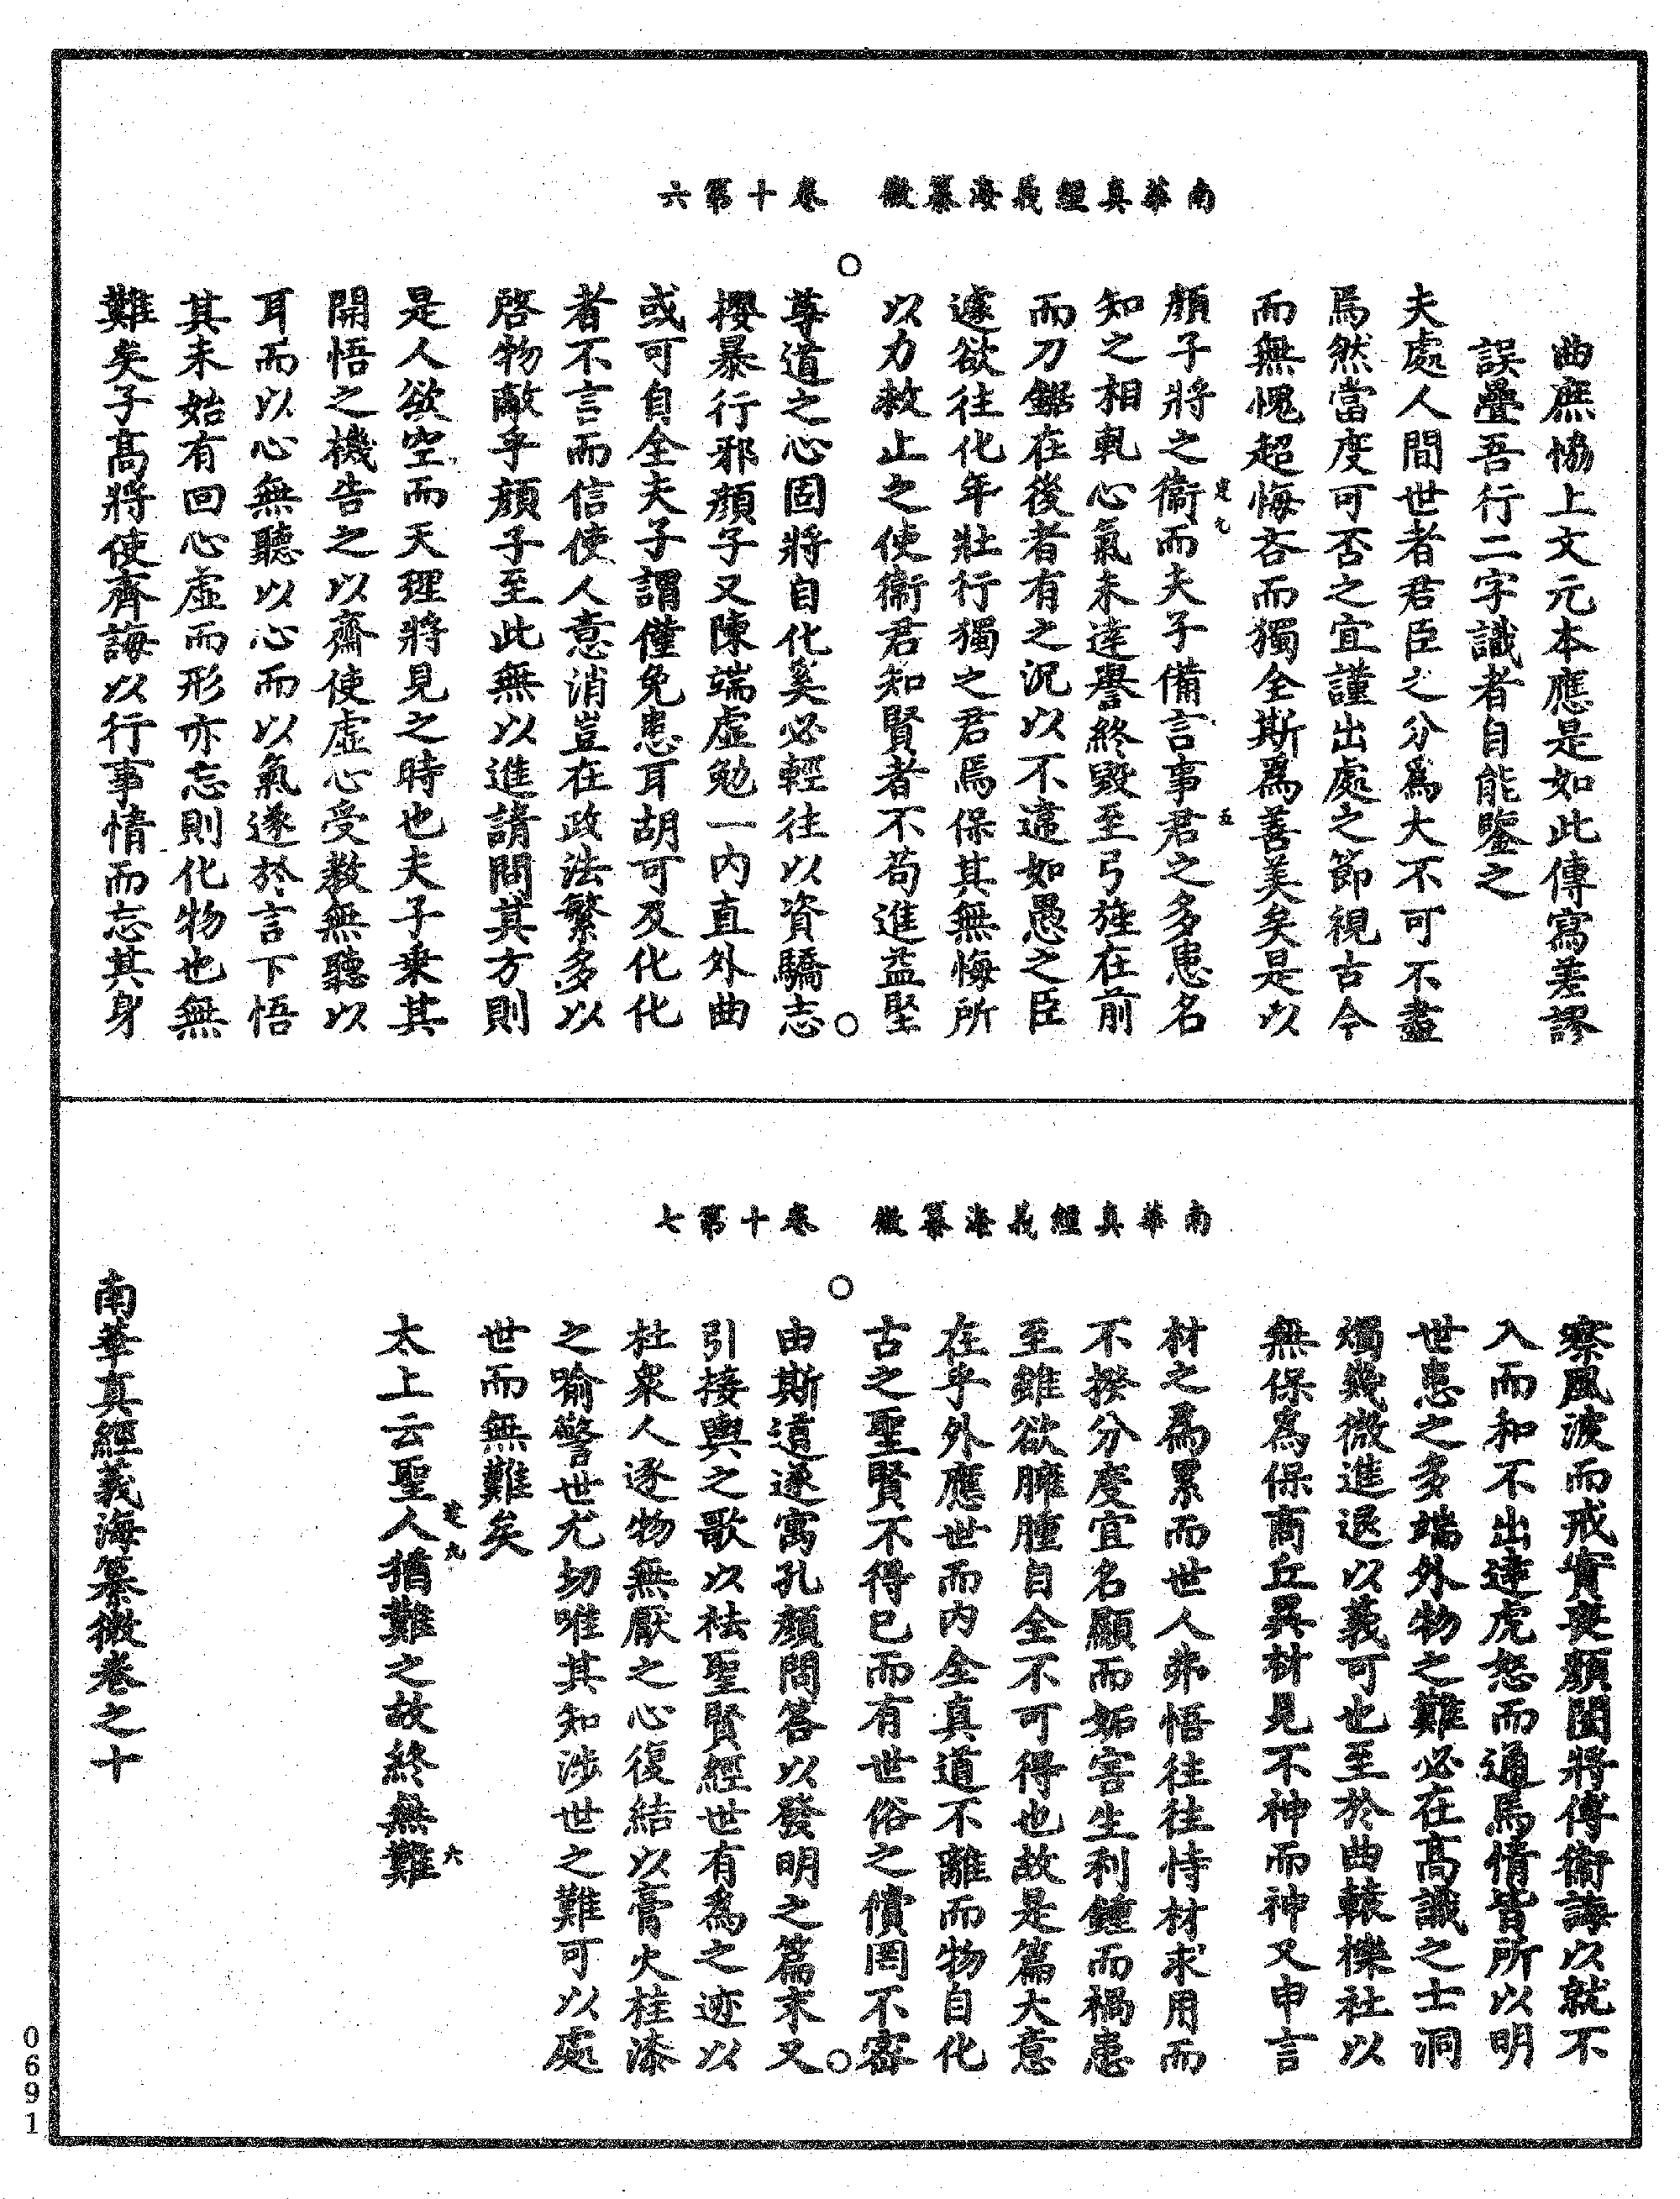 南華真經義海纂微　卷十第六
曲庶協上文元本應是如此傳寫差謬
誤疊吾行二字識者自能鑒之
夫處人間世者君臣之分爲大不可不盡
焉然當度可否之宜謹出處之節視古今
而無愧超悔吝而獨全斯爲善美矣是以
顏子將之衞而夫子備言事君之多患名
知之相軋心氣未達譽終毀至弓旌在前
而刀鋸在後者有之況以不違如愚之臣
遽欲往化年壯行獨之君焉保其無悔所
以力救止之使衞君知賢者不苟進益堅
尊道之心固將自化奚必輕往以資驕志
攖暴行邪顏子又陳端虛勉一內直外曲
或可自全夫子謂僅免患耳胡可及化化
者不言而信使人意消豈在政法繁多以
啓物敵乎顏子至此無以進請問其方則
是人欲空而天理將見之時也夫子乗其
開悟之機告之以齋使虛心受教無聽以
耳而以心無聽以心而以氣遂於言下悟
其未始有回心虛而形亦忘則化物也無
難矣子高將使齊誨以行事情而忘其身
南華真經義海纂微　卷十第七
察風波而戒實喪顏闔將傅衞誨以就不
入而和不出達虎怒而通馬情皆所以明
世患之多端外物之難必在高識之士洞
燭幾微進退以義可也至於曲轅櫟社以
無保爲保商丘異材見不神而神又申言
材之爲累而世人弗悟往往恃材求用而
不揆分度宜名顯而妬害生利鍾而禍患
至雖欲臃腫自全不可得也故是篇大意
在乎外應世而內全真道不離而物自化
古之聖賢不得已而有世俗之償罔不審
由斯道遂寓孔顏問答以發明之篇末又
引接輿之歌以袪聖賢經世有爲之迹以
杜衆人逐物無厭之心復結以膏火桂漆
之喻警世尤切唯其知涉世之難可以處
世而無難矣
太上云聖人猶難之故終無難
南華真經義海纂微卷之十
0691